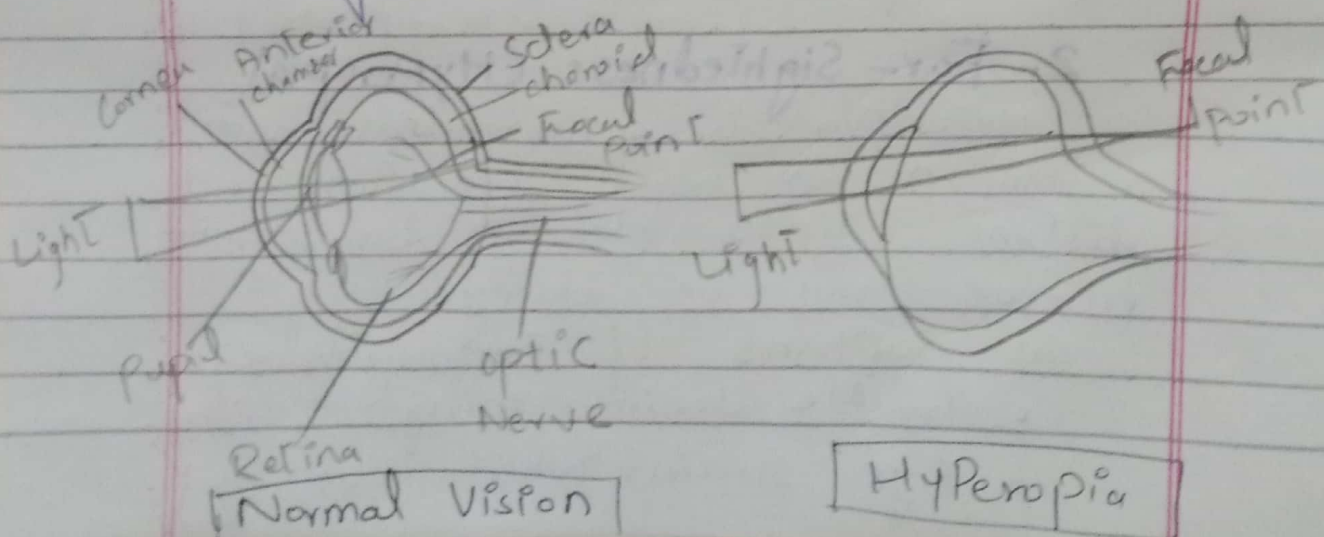 Cornea
Anterior
chamber
Sclera
choroid
Focal
Point
Light
Pupil
Retina
optic
Nerve
Normal Vision
Focal
point
Light
HyPeropia